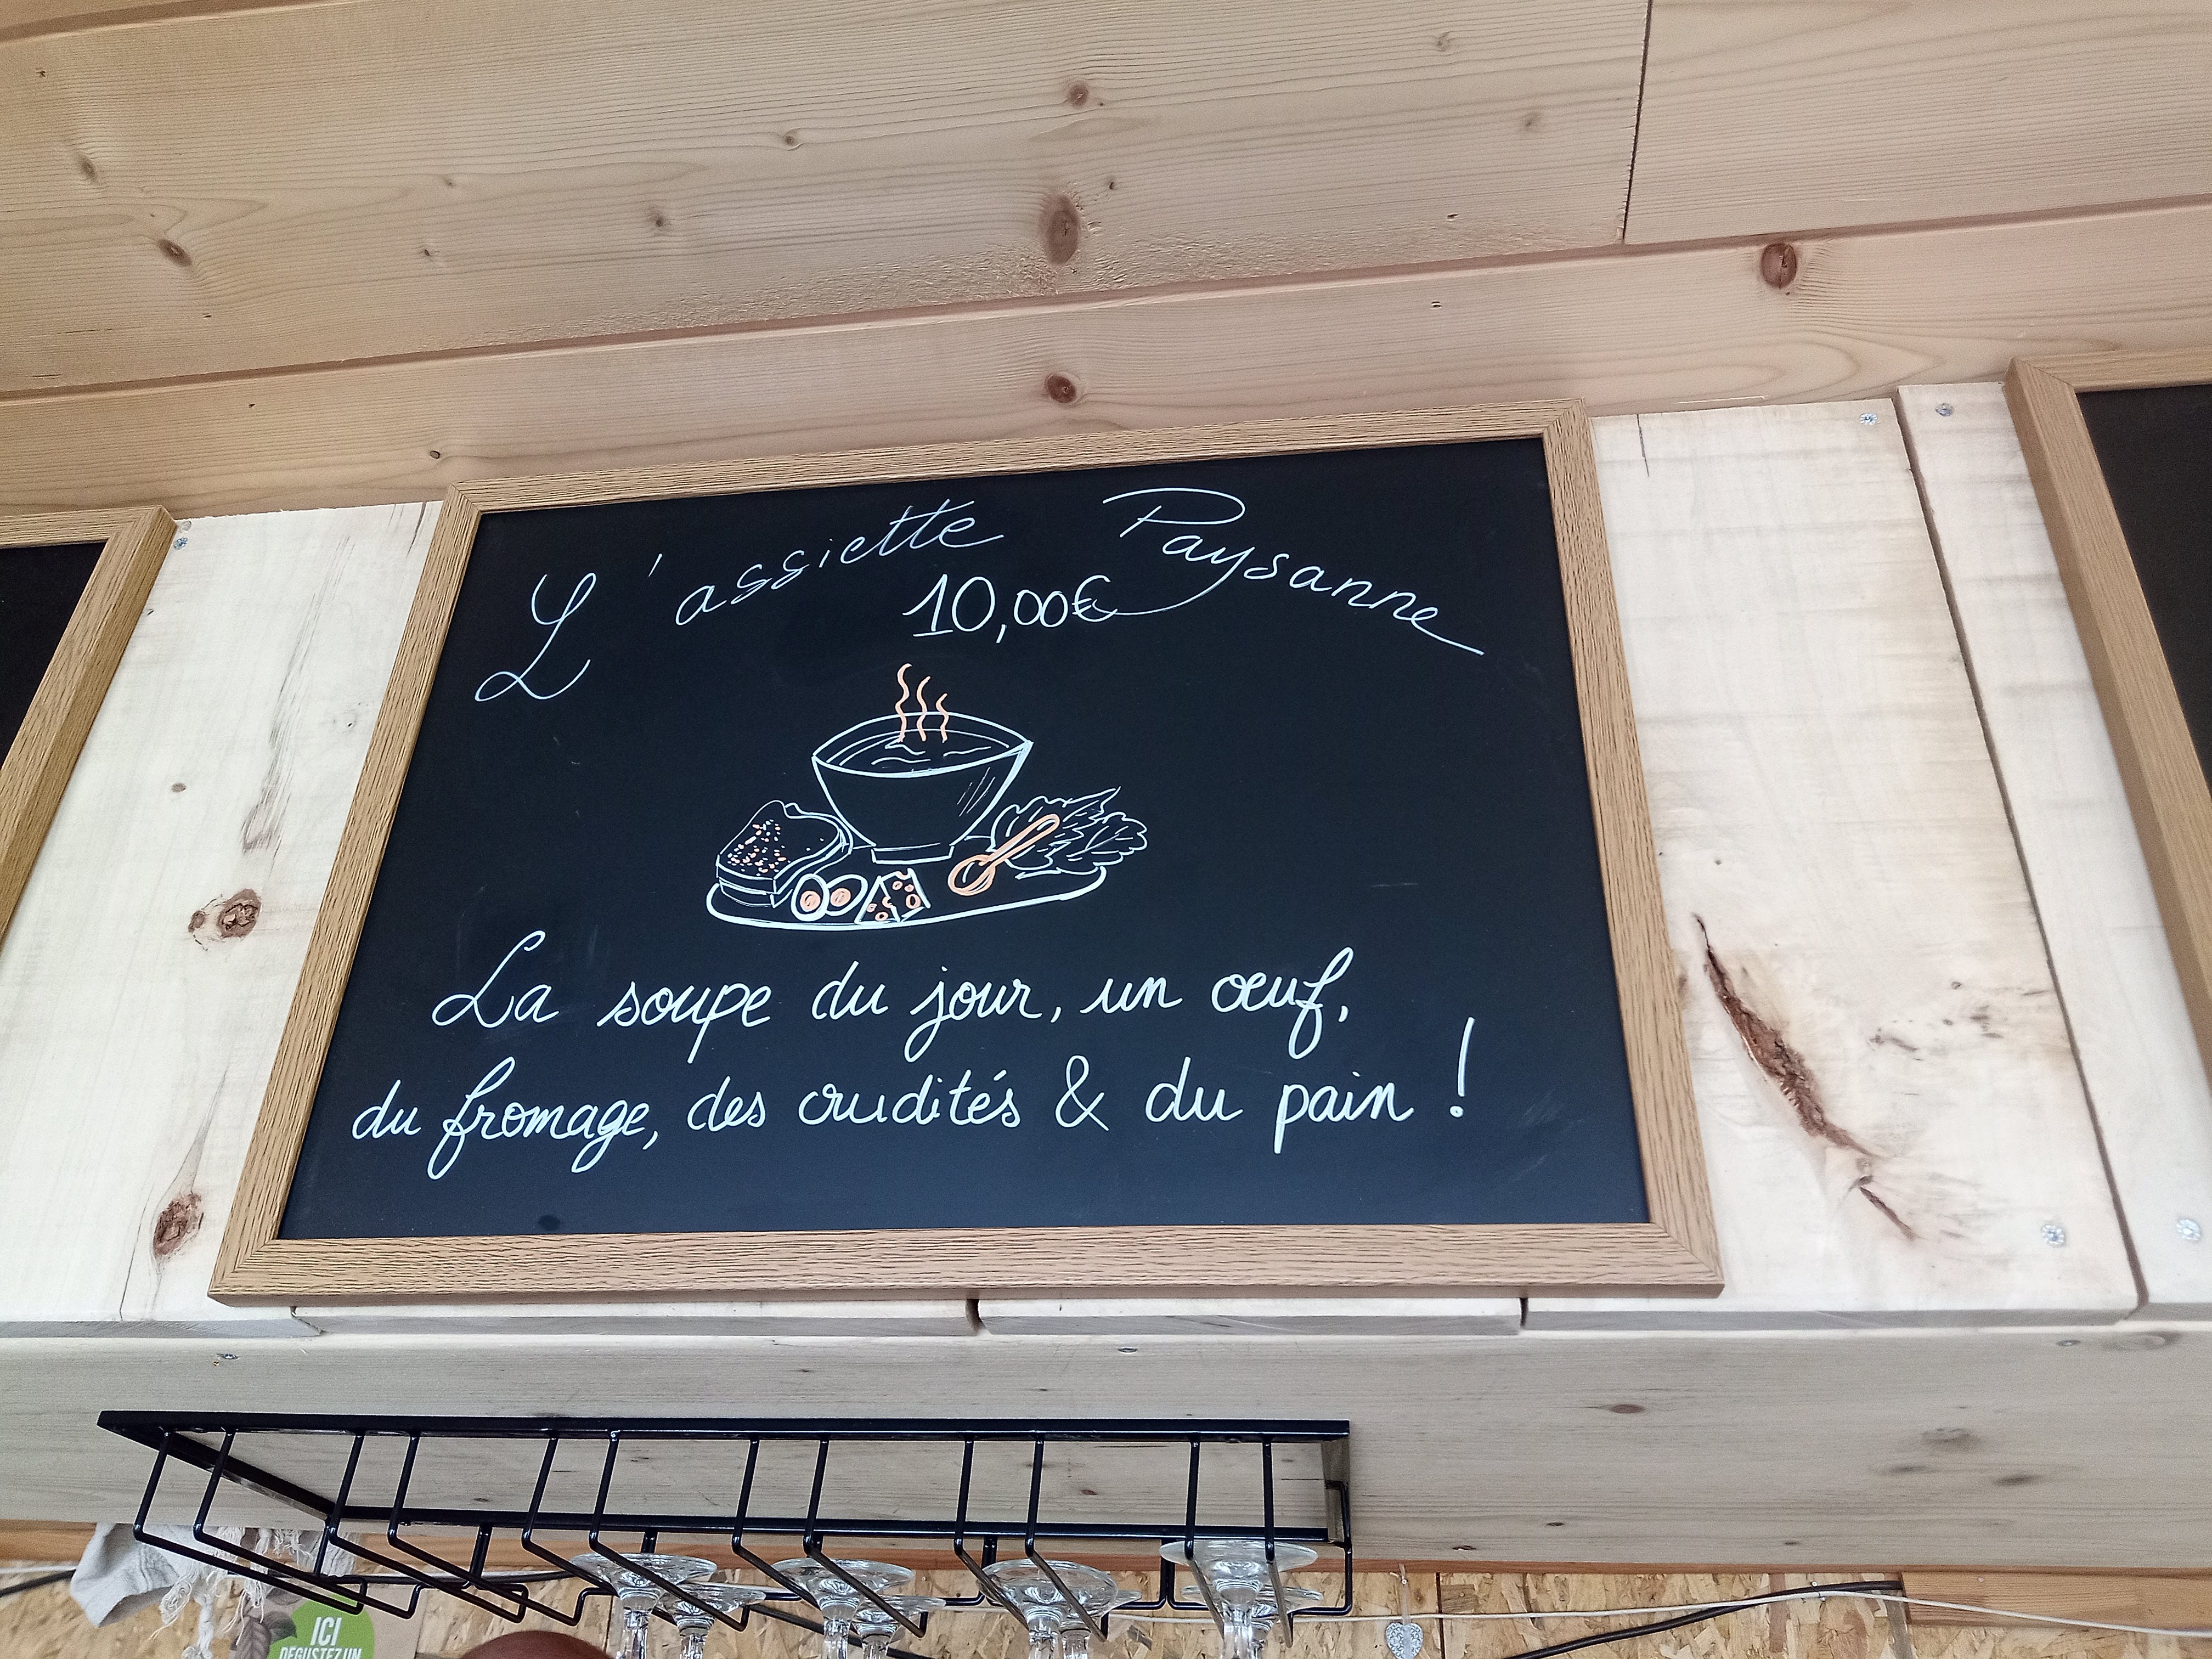 L'assiette Paysanne
10,00€
La soupe du jour, un œuf,
du fromage, des crudités & du pain !
ICI
DÉGUSTEZ UN